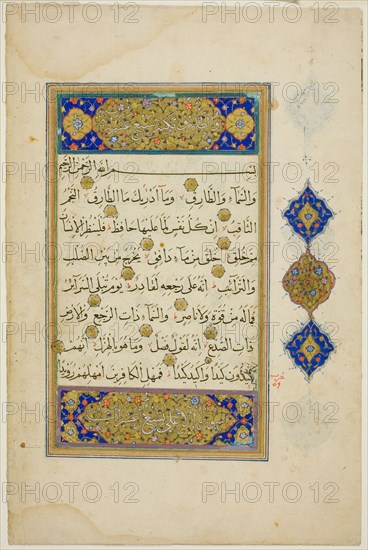 بسم الله الرحمن الرحيم
والسماء والطارق وما أدراك ما الطارق النجم
الثاقب إن كل نفس لما عليها حافظ فلينظر الإنسان
مم خلق خلق من ماء دافق يخرج من بين الصلب
والترائب إنه على رجعه لقادر يوم تبلى السرائر
فما له من قوة ولا ناصر والسماء ذات الرجع والأرض
ذات الصدع إنه لقول فصل وما هو بالهزل إنهم
يكيدون كيدا وأكيد كيدا فمهل الكافرين أمهلهم رويدا
PHOTO12